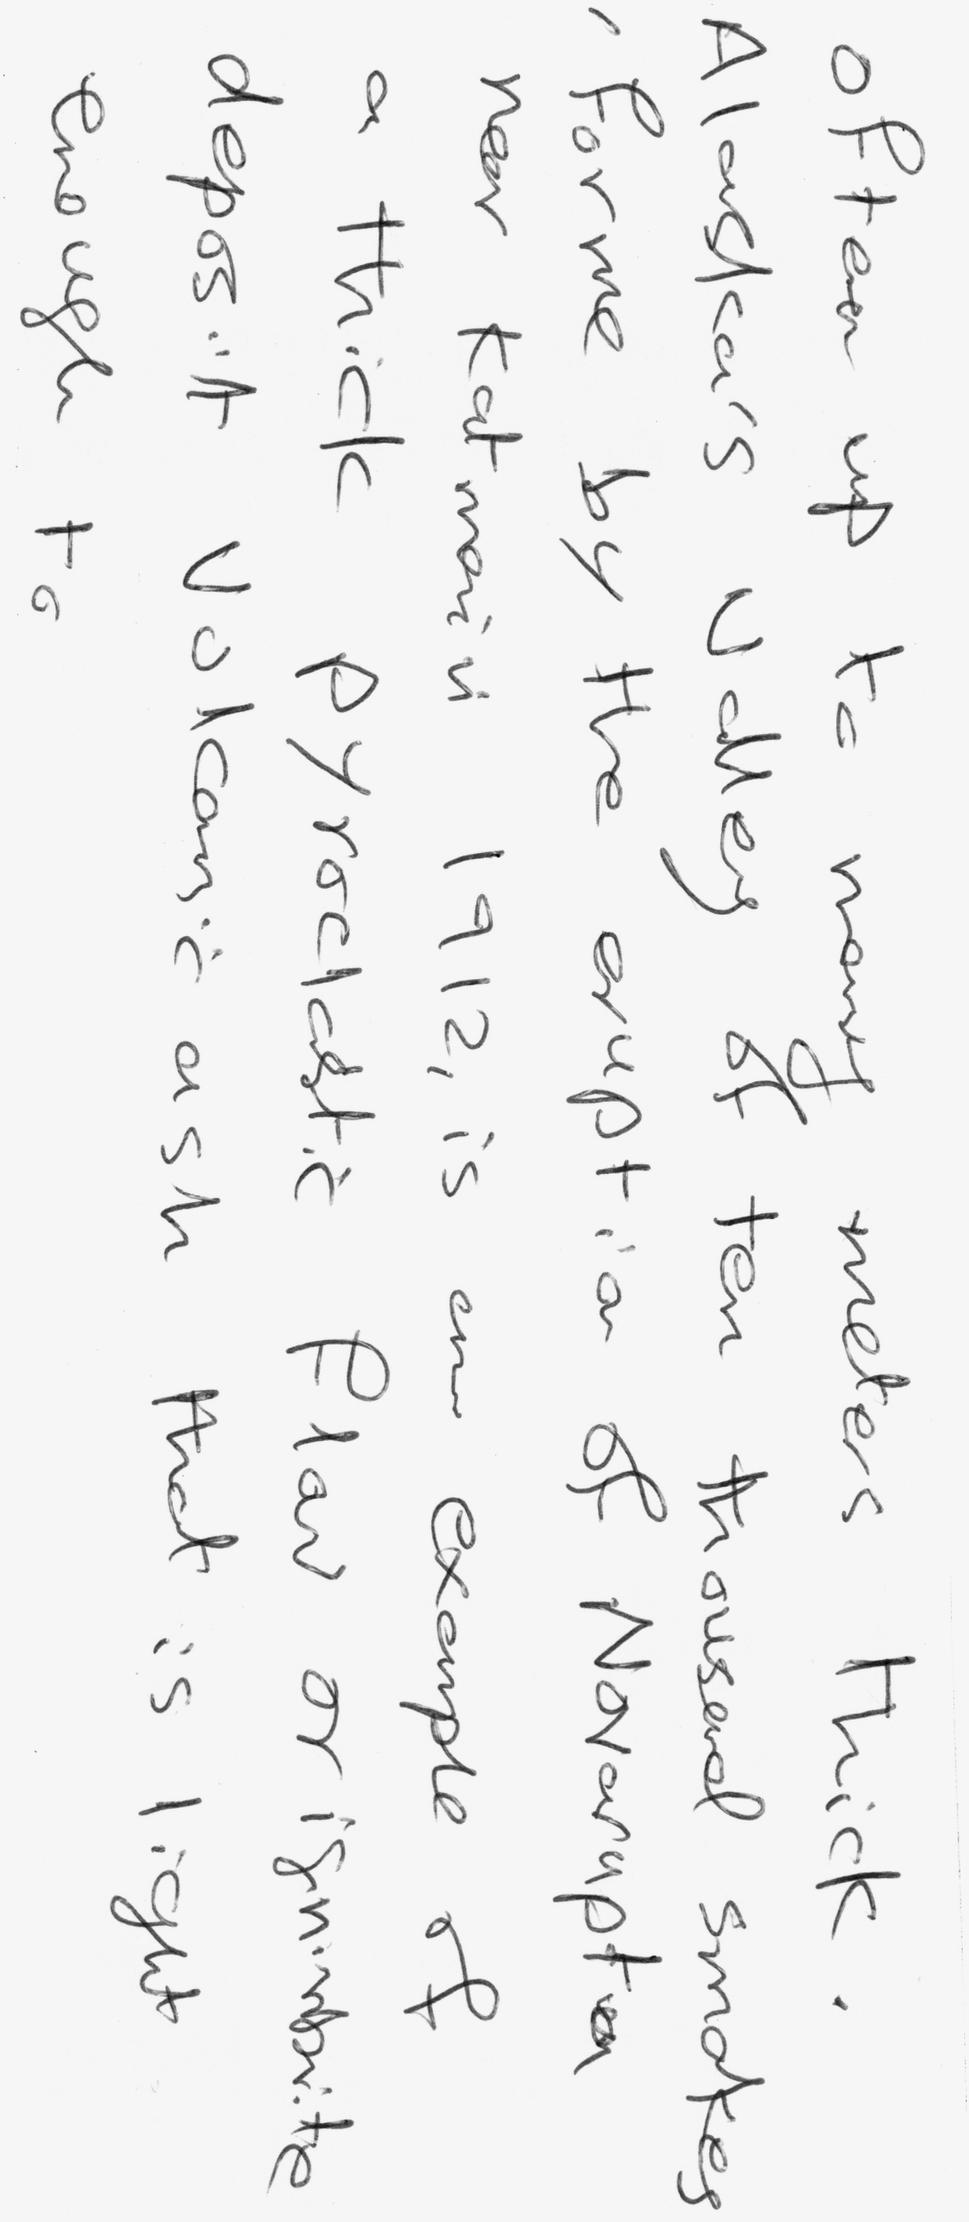 often up to many meters thick.
Alaska's Valley of ten thousand smokes
, forme by the eruption of Novarupta
near Katmai in 1912, is an example of
a thick pyroclastic flow or ignimbrite
deposit volcanic ash that is light
enough to